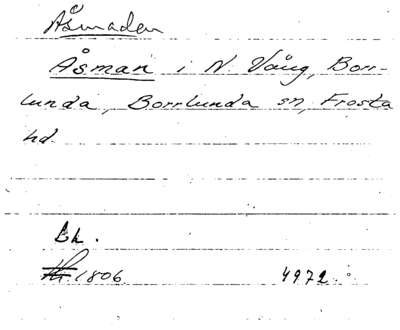 Åsmaden
Åsman i N Vång, Borr-
lunda, Borrlunda sn, Frosta
hd.
Lh.
1806. 4972.